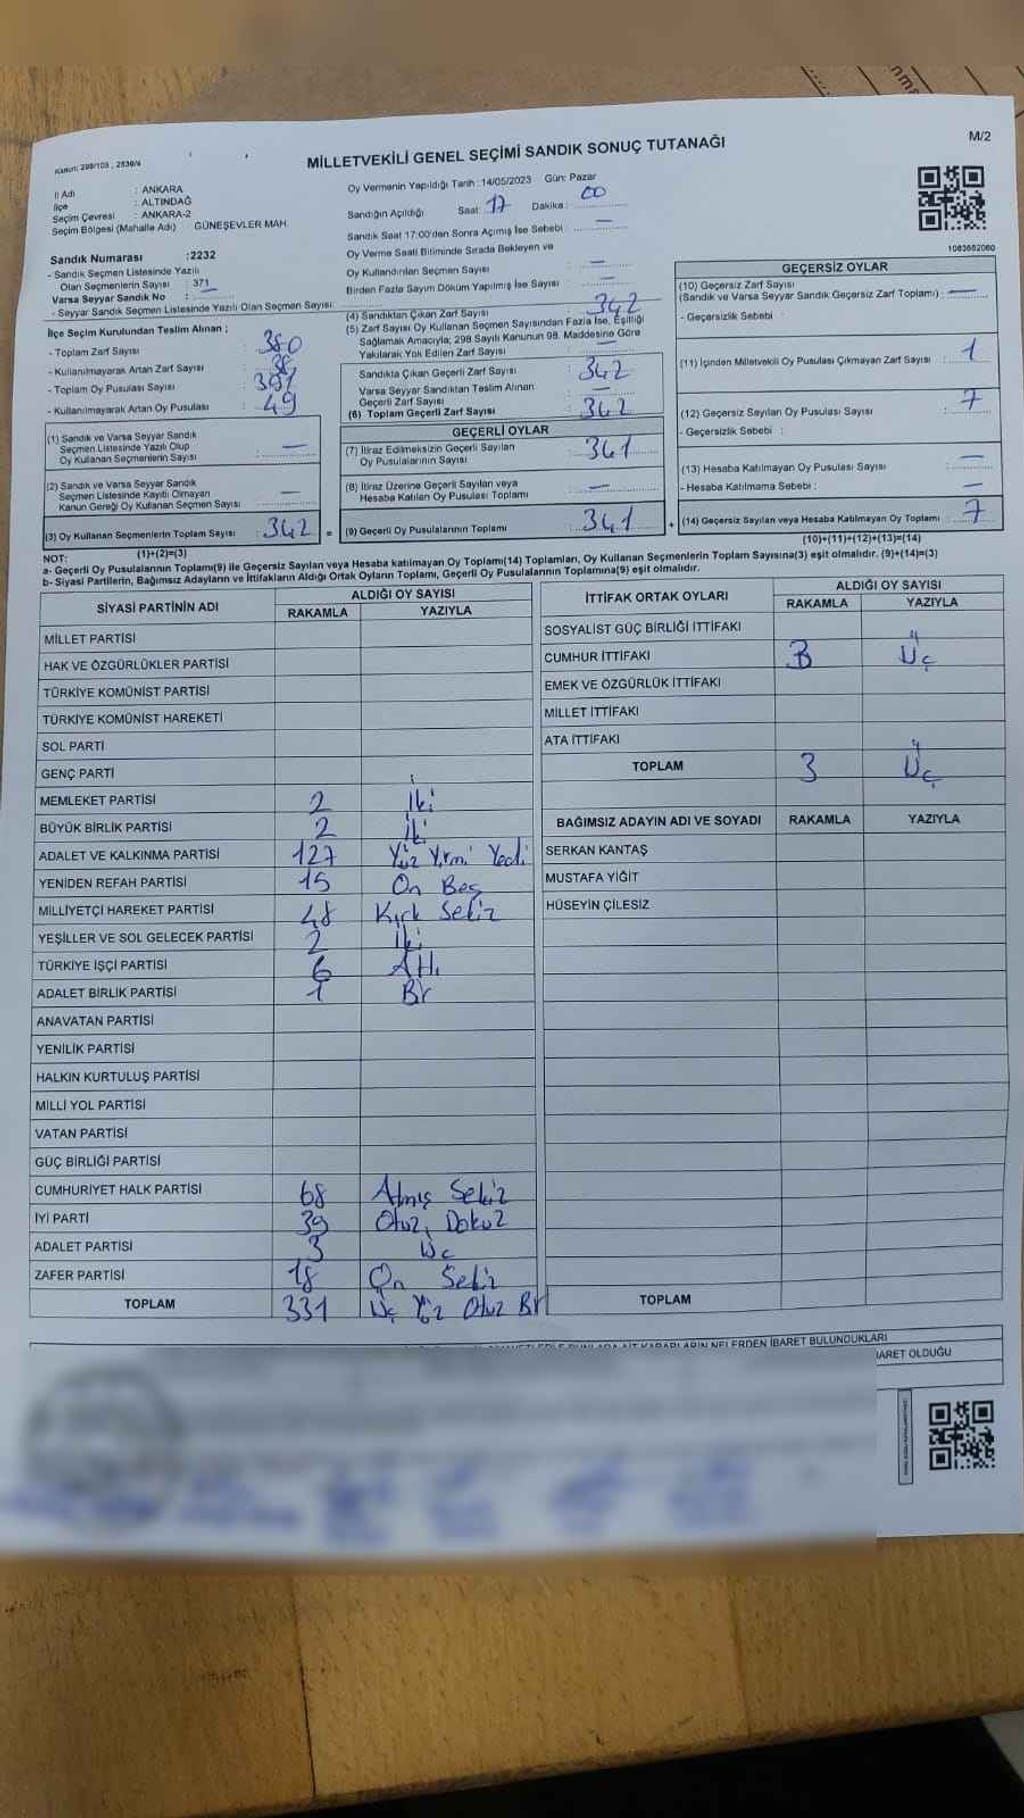 Kanun: 298/103 , 2839/4
M/2
MİLLETVEKİLİ GENEL SEÇİMİ SANDIK SONUÇ TUTANAĞI
İl Adı : ANKARA
İlçe : ALTINDAĞ
Seçim Çevresi : ANKARA-2
Seçim Bölgesi (Mahalle Adı) GÜNEŞEVLER MAH.
Oy Vermenin Yapıldığı Tarih :14/05/2023 Gün: Pazar
Sandığın Açıldığı Saat: 17 Dakika : 00
Sandık Saat 17:00'den Sonra Açımış İse Sebebi : —
Oy Verme Saati Bitiminde Sırada Bekleyen ve
Oy Kullandırılan Seçmen Sayısı : —
Birden Fazla Sayım Döküm Yapılmış İse Sayısı : —
1083662060
Sandık Numarası :2232
- Sandık Seçmen Listesinde Yazılı
Olan Seçmenlerin Sayısı : 371
Varsa Seyyar Sandık No : —
- Seyyar Sandık Seçmen Listesinde Yazılı Olan Seçmen Sayısı:
İlçe Seçim Kurulundan Teslim Alınan ;
- Toplam Zarf Sayısı : 380
- Kullanılmayarak Artan Zarf Sayısı : 38
- Toplam Oy Pusulası Sayısı : 391
- Kullanılmayarak Artan Oy Pusulası : 49
(1) Sandık ve Varsa Seyyar Sandık
Seçmen Listesinde Yazılı Olup
Oy Kullanan Seçmenlerin Sayısı : —
(2) Sandık ve Varsa Seyyar Sandık
Seçmen Listesinde Kayıtlı Olmayan
Kanun Gereği Oy Kullanan Seçmen Sayısı : —
(3) Oy Kullanan Seçmenlerin Toplam Sayısı : 342 =
(1)+(2)=(3)
(4) Sandıktan Çıkan Zarf Sayısı : 342
(5) Zarf Sayısı Oy Kullanan Seçmen Sayısından Fazla İse, Eşitliği
Sağlamak Amacıyla; 298 Sayılı Kanunun 98. Maddesine Göre
Yakılarak Yok Edilen Zarf Sayısı : —
Sandıkta Çıkan Geçerli Zarf Sayısı : 342
Varsa Seyyar Sandıktan Teslim Alınan
Geçerli Zarf Sayısı : —
(6) Toplam Geçerli Zarf Sayısı : 342
GEÇERLİ OYLAR
(7) İtiraz Edilmeksizin Geçerli Sayılan
Oy Pusulalarının Sayısı : 341
(8) İtiraz Üzerine Geçerli Sayılan veya
Hesaba Katılan Oy Pusulası Toplamı : —
(9) Geçerli Oy Pusulalarının Toplamı : 341 +
GEÇERSİZ OYLAR
(10) Geçersiz Zarf Sayısı
(Sandık ve Varsa Seyyar Sandık Geçersiz Zarf Toplamı) : —
- Geçersizlik Sebebi :
(11) İçinden Milletvekili Oy Pusulası Çıkmayan Zarf Sayısı : 1
(12) Geçersiz Sayılan Oy Pusulası Sayısı : 7
- Geçersizlik Sebebi :
(13) Hesaba Katılmayan Oy Pusulası Sayısı : —
- Hesaba Katılmama Sebebi : —
(14) Geçersiz Sayılan veya Hesaba Katılmayan Oy Toplamı : 7
(10)+(11)+(12)+(13)=(14)
NOT:
a- Geçerli Oy Pusulalarının Toplamı(9) ile Geçersiz Sayılan veya Hesaba katılmayan Oy Toplamı(14) Toplamları, Oy Kullanan Seçmenlerin Toplam Sayısına(3) eşit olmalıdır. (9)+(14)=(3)
b- Siyasi Partilerin, Bağımsız Adayların ve İttifakların Aldığı Ortak Oyların Toplamı, Geçerli Oy Pusulalarının Toplamına(9) eşit olmalıdır.
SİYASİ PARTİNİN ADI ALDIĞI OY SAYISI
RAKAMLA YAZIYLA
MİLLET PARTİSİ
HAK VE ÖZGÜRLÜKLER PARTİSİ
TÜRKİYE KOMÜNİST PARTİSİ
TÜRKİYE KOMÜNİST HAREKETİ
SOL PARTİ
GENÇ PARTİ
MEMLEKET PARTİSİ 2 İki
BÜYÜK BİRLİK PARTİSİ 2 İki
ADALET VE KALKINMA PARTİSİ 127 Yüz Yirmi Yedi
YENİDEN REFAH PARTİSİ 15 On Beş
MİLLİYETÇİ HAREKET PARTİSİ 48 Kırk Sekiz
YEŞİLLER VE SOL GELECEK PARTİSİ 2 İki
TÜRKİYE İŞÇİ PARTİSİ 6 Altı
ADALET BİRLİK PARTİSİ 1 Bir
ANAVATAN PARTİSİ
YENİLİK PARTİSİ
HALKIN KURTULUŞ PARTİSİ
MİLLİ YOL PARTİSİ
VATAN PARTİSİ
GÜÇ BİRLİĞİ PARTİSİ
CUMHURİYET HALK PARTİSİ 68 Atmış Sekiz
İYİ PARTİ 39 Otuz Dokuz
ADALET PARTİSİ 3 Üç
ZAFER PARTİSİ 18 On Sekiz
TOPLAM 331 Üç Yüz Otuz Bir
İTTİFAK ORTAK OYLARI ALDIĞI OY SAYISI
RAKAMLA YAZIYLA
SOSYALİST GÜÇ BİRLİĞİ İTTİFAKI
CUMHUR İTTİFAKI 3 Üç
EMEK VE ÖZGÜRLÜK İTTİFAKI
MİLLET İTTİFAKI
ATA İTTİFAKI
TOPLAM 3 Üç
BAĞIMSIZ ADAYIN ADI VE SOYADI RAKAMLA YAZIYLA
SERKAN KANTAŞ
MUSTAFA YİĞİT
HÜSEYİN ÇİLESİZ
TOPLAM
KARARLARIN NELERDEN İBARET BULUNDUKLARI
OLDUĞU